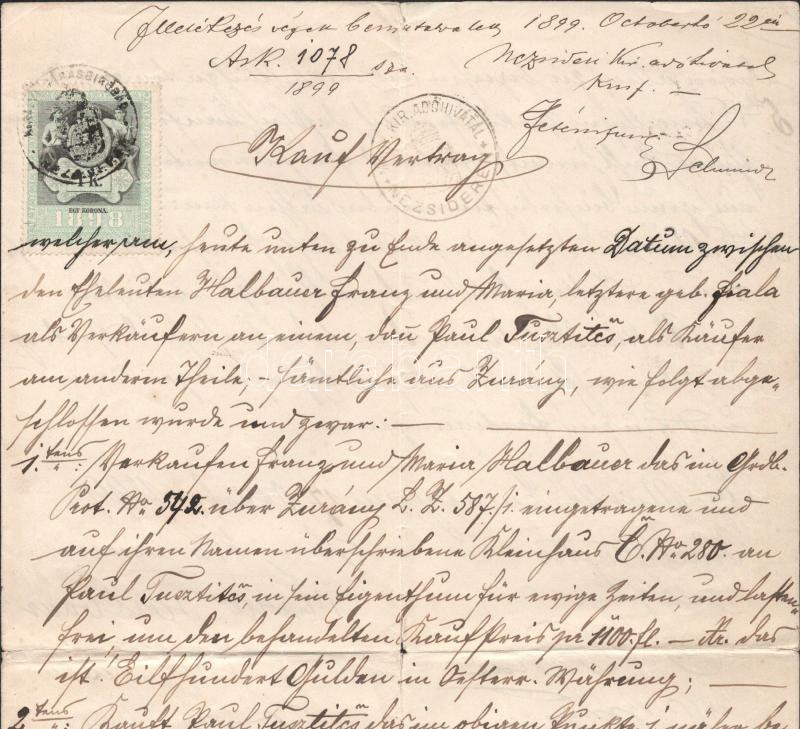 Illetékezés végett bemutatva lett 1899. October hó 22 én
Ask. 1078 sz.
1899
Nezsideri kir. adóhivatal
Schmidt
1 K.
EGY KORONA
1898
KIR. ADÓHIVATAL
NEZSIDEREN
Kauf Vertrag
welcher am, heute unten zu Ende angesetzten Datum zwischen
den Eheleuten Halbauer Franz und Maria, letztere geb. Fiala
als Verkäufern an einem, dan Paul Tusztitcs, als Käufer
am anderm Theile, – sämtliche aus Zurány, wie folgt abge-
schlossen wurde und zwar: –
1. tens: Verkaufen Franz und Maria Halbauer das im Grdb.
Prot. No 542. über Zurány L. Z. 587./1. eingetragene und
auf ihren Namen überschriebene Kleinhaus C. No 280. an
Paul Tusztitcs, in sein Eigenthum für ewige Zeiten, und lasten-
frei, um den behandelten Kaufpreis pr 1100 fl. – Kr. das
ist: Eilfhundert Gulden in Oesterr. Währung; –
2. tens: Kauft Paul Tusztitcs das im obigen Punkte 1 näher be-
darabanth